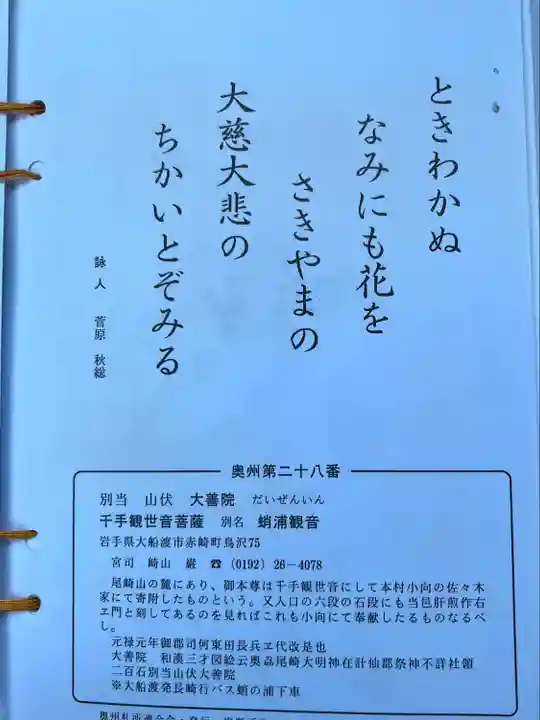 ときわかぬ
なみにも花を
さきやまの
大慈大悲の
ちかいとぞみる
詠人 菅原 秋総
奥州第二十八番
別当 山伏 大善院 だいぜんいん
千手観世音菩薩 別名 蛸浦観音
岩手県大船渡市赤崎町鳥沢75
宮司 崎山 巌 ☎(0192)26-4078
尾崎山の麓にあり、御本尊は千手観世音にして本村小向の佐々木
家にて寄附したものという。又入口の六段の石段にも当邑肝煎作右
ヱ門と刻してあるのを見ればこれも小向にて奉献したるものなるべ
し。
元禄元年御郡司何東田長兵ヱ代改是也
大善院 和漢三才図絵云奥刕尾崎大明神在計仙郡祭神不詳社領
二百石別当山伏大善院
※大船渡発長崎行バス蛸の浦下車